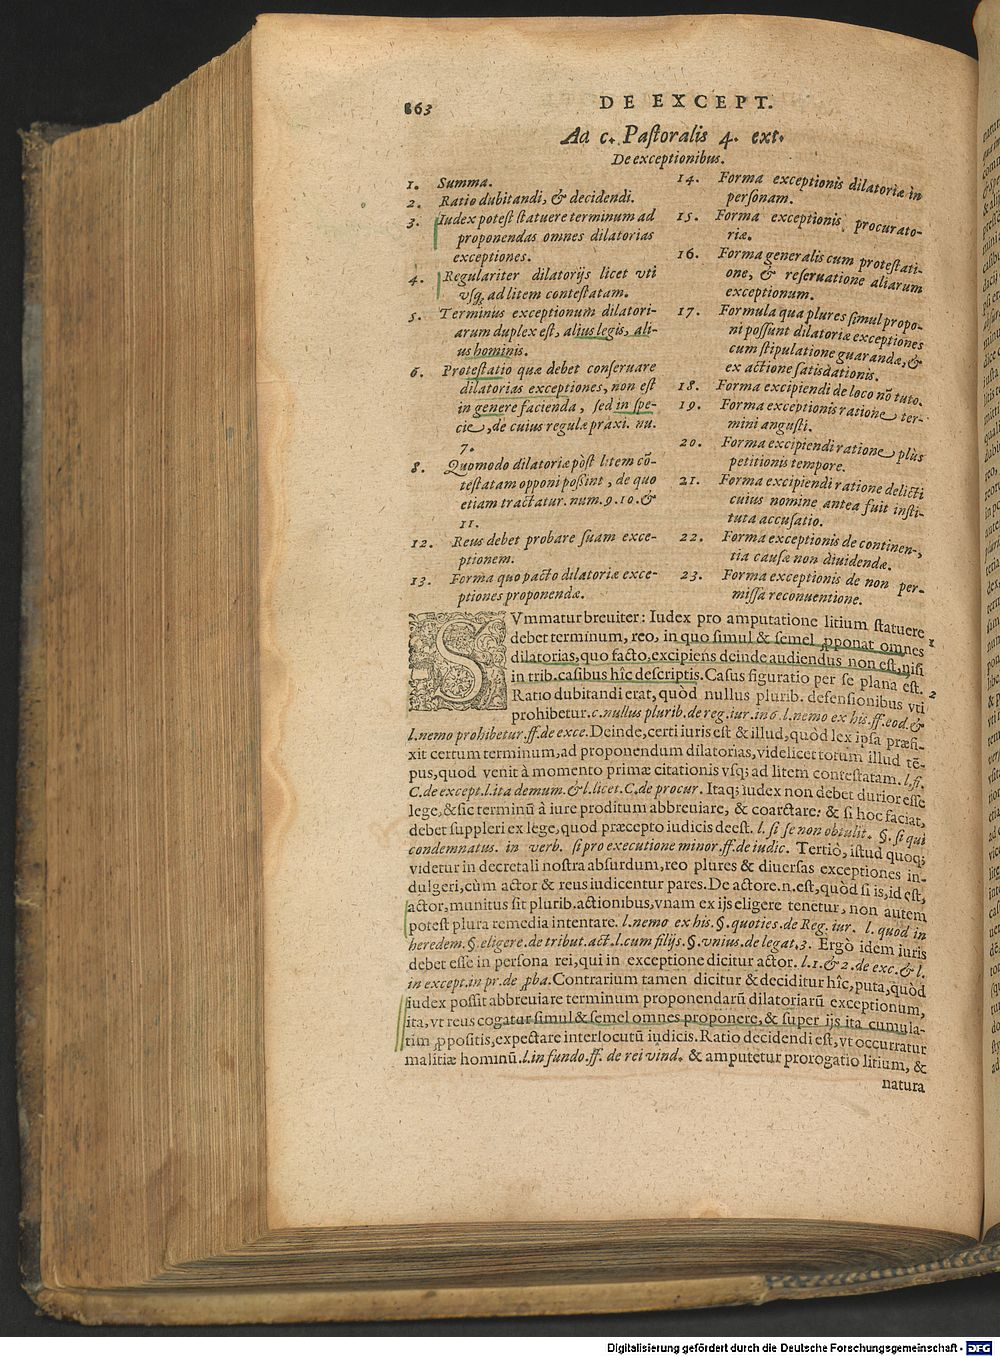 863
DE EXCEPT.
Ad c. Pastoralis 4. ext.
De exceptionibus.
1. Summa.
2. Ratio dubitandi, & decidendi.
3. Iudex potest statuere terminum ad
proponendas omnes dilatorias
exceptiones.
4. Regulariter dilatorijs licet vti
vsq; ad litem contestatam.
5. Terminus exceptionum dilatori-
arum duplex est, alius legis, ali-
us hominis.
6. Protestatio quæ debet conseruare
dilatorias exceptiones, non est
in genere facienda, sed in spe-
cie, de cuius regulæ praxi. nu.
7.
8. Quomodo dilatoriæ pòst litem cō-
testatam opponi poßint, de quo
etiam tractatur. num. 9. 10. &
11.
12. Reus debet probare suam exce-
ptionem.
13. Forma quo pacto dilatoriæ exce-
ptiones proponendæ.
14. Forma exceptionis dilatoriæ in
personam.
15. Forma exceptionis procurato-
riæ.
16. Forma generalis cum protestati-
one, & reseruatione aliarum
exceptionum.
17. Formula qua plures simul propo-
ni possunt dilatoriæ exceptiones
cum stipulatione guarandæ, &
ex actione satisdationis.
18. Forma excipiendi de loco nō tuto.
19. Forma exceptionis ratione ter-
mini angusti.
20. Forma excipiendi ratione plùs
petitionis tempore.
21. Forma excipiendi ratione delicti
cuius nomine antea fuit insti-
tuta accusatio.
22. Forma exceptionis de continen-
tia causæ non diuidendæ.
23. Forma exceptionis de non per-
missa reconuentione.
SVmmatur breuiter: Iudex pro amputatione litium statuere
debet terminum, reo, in quo simul & semel ꝓponat omnes 1
dilatorias, quo facto, excipiens deinde audiendus non est, nisi
in trib. casibus hîc descriptis. Casus figuratio per se plana est.
Ratio dubitandi erat, quòd nullus plurib. defensionibus vti 2
prohibetur. c. nullus plurib. de reg. iur. in 6. l. nemo ex his. ff. eod. &
l. nemo prohibetur. ff. de exce. Deinde, certi iuris est & illud, quòd lex ipsa præfi-
xit certum terminum, ad proponendum dilatorias, videlicet totum illud tē-
pus, quod venit à momento primæ citationis vsq; ad litem contestatam. l. fi.
C. de except. l. ita demum. & l. licet. C. de procur. Itaq; iudex non debet durior esse
lege, & sic terminū à iure proditum abbreuiare, & coarctare: & si hoc faciat,
debet suppleri ex lege, quod præcepto iudicis deest. l. si se non obtulit. §. si qui
condemnatus. in verb. si pro executione minor. ff. de iudic. Tertiò, istud quoq;
videtur in decretali nostra absurdum, reo plures & diuersas exceptiones in-
dulgeri, cùm actor & reus iudicentur pares. De actore. n. est, quòd si is, id est,
actor, munitus sit plurib. actionibus, vnam ex ijs eligere tenetur, non autem
potest plura remedia intentare. l. nemo ex his. §. quoties. de Reg. iur. l. quod in
heredem. §. eligere. de tribut. act. l. cum filijs. §. vnius. de legat. 3. Ergò idem iuris
debet esse in persona rei, qui in exceptione dicitur actor. l. 1. & 2. de exc. & l.
in except. in pr. de ꝓba. Contrarium tamen dicitur & deciditur hîc, puta, quòd
iudex possit abbreuiare terminum proponendarū dilatoriarū exceptionum,
ita, vt reus cogatur simul & semel omnes proponere, & super ijs ita cumula-
tim ꝓpositis, expectare interlocutū iudicis. Ratio decidendi est, vt occurratur
malitiæ hominū. l. in fundo. ff. de rei vind. & amputetur prorogatio litium, &
natura
Digitalisierung gefördert durch die Deutsche Forschungsgemeinschaft - DFG